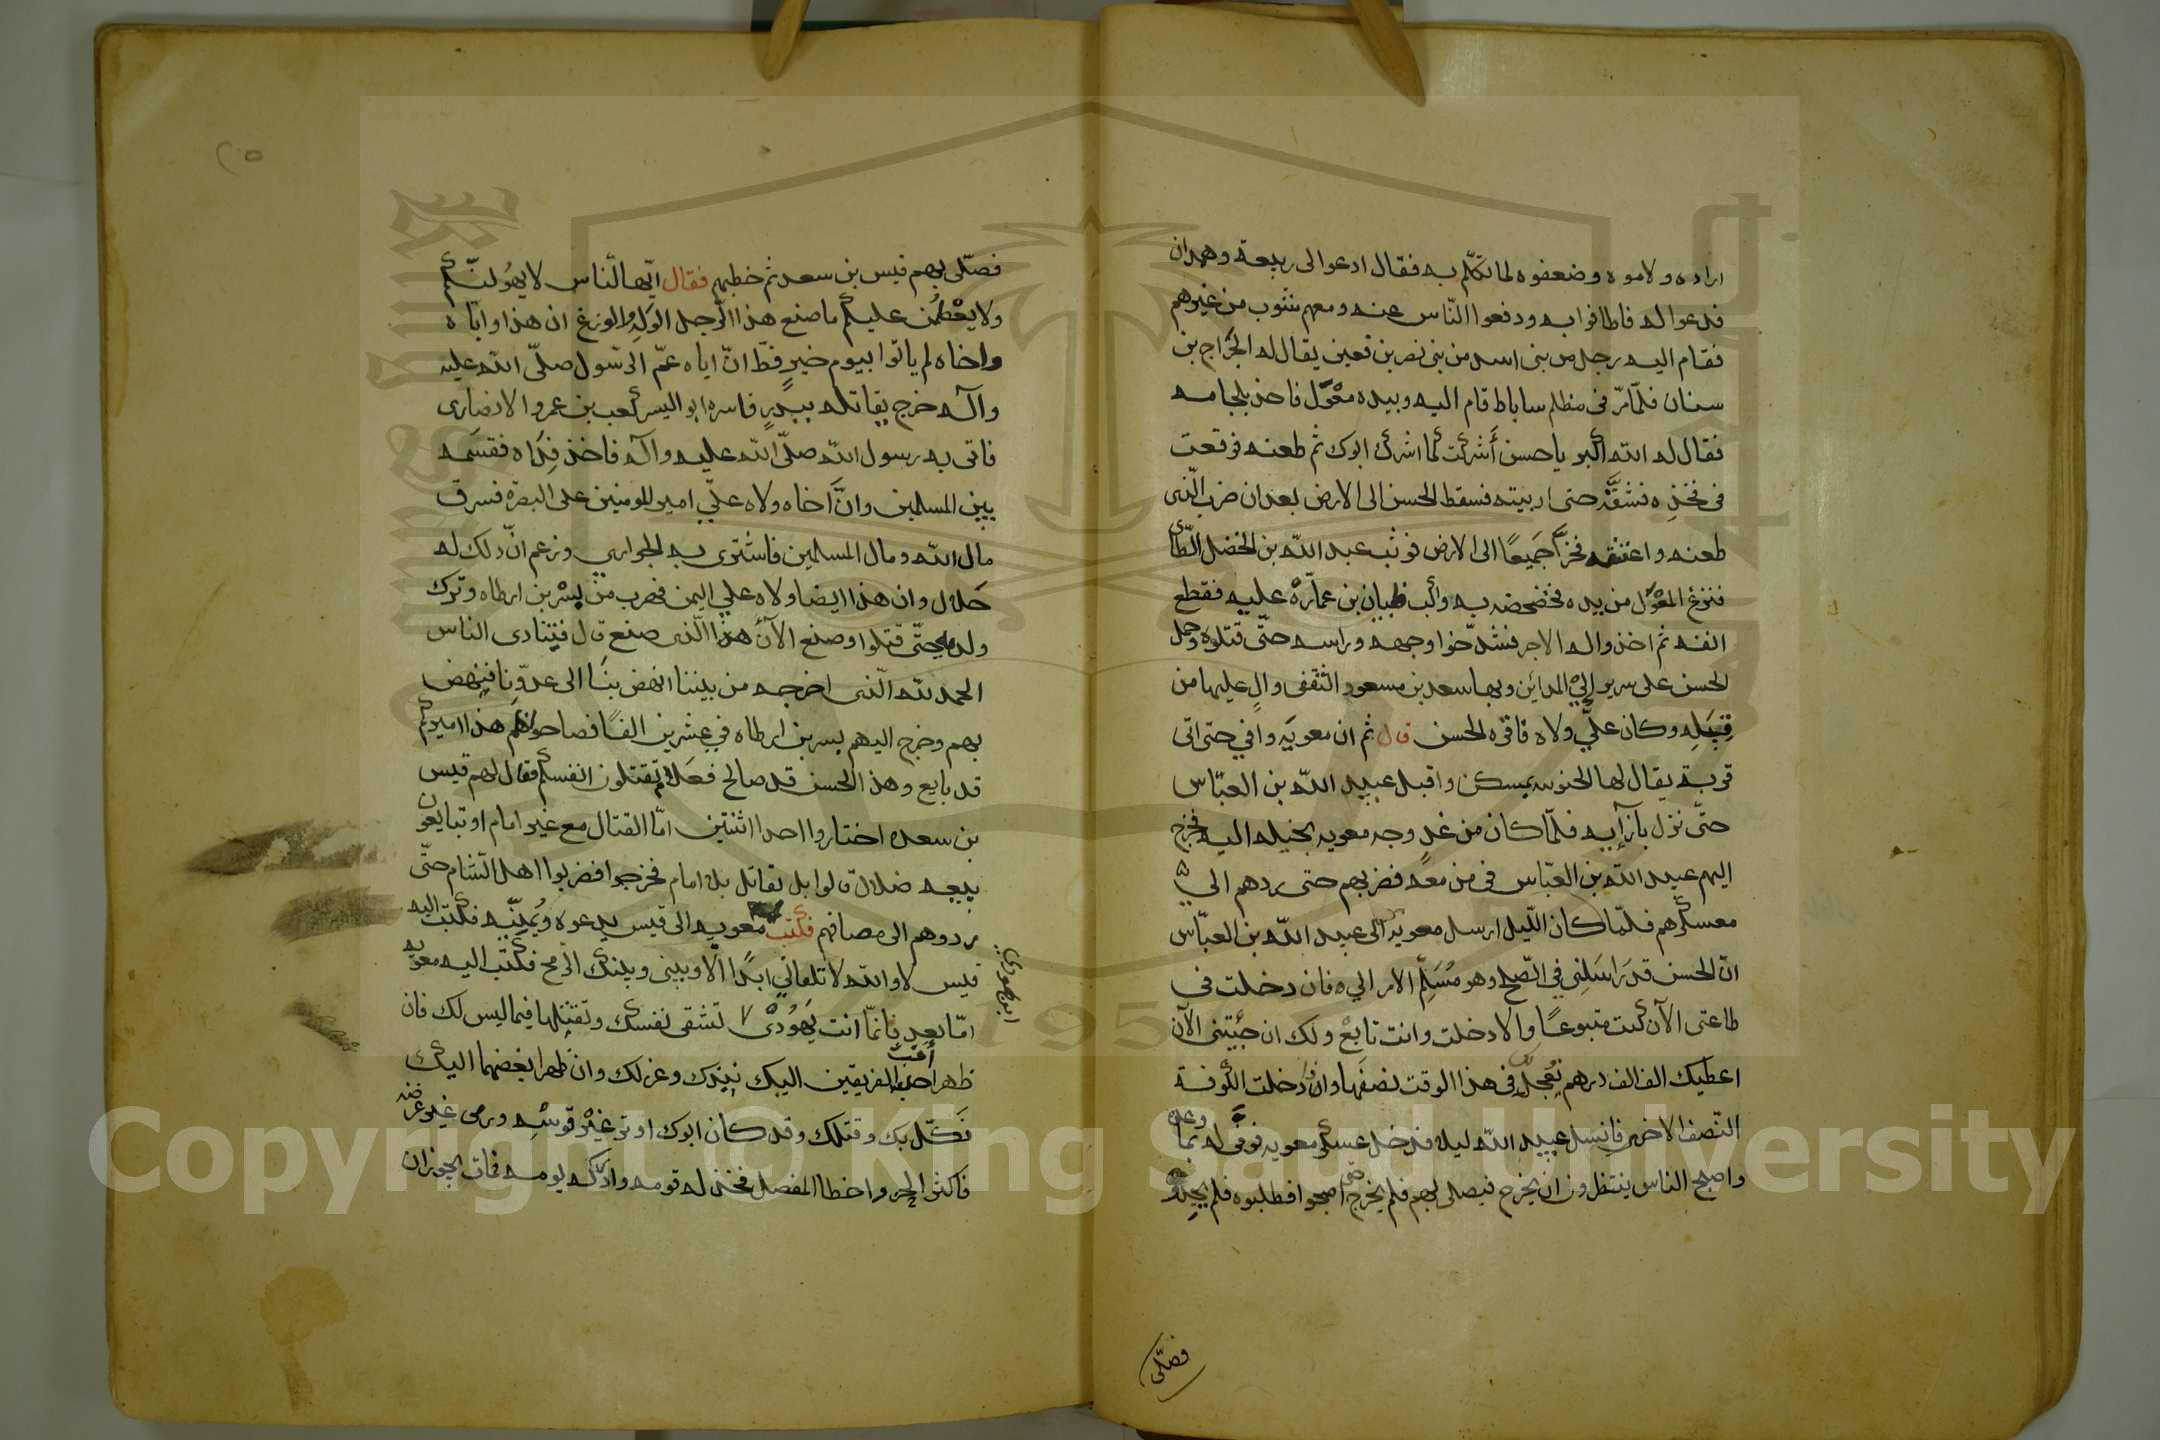 اراده ولاموه وضعفوه لما تكلّم به فقال ادعوا لى ربيعة وهمدان
فدعوا له فاطافوا به ودفعوا النّاس عنه ومعهم شوب من غيرهم
فقام اليه رجل من بنى اسد من بنى نصر بن قعين يقال له الجرّاج بن
سنان فلمّا مرّ فى مظلم ساباط قام اليه وبيده معْوَل فاخذ بلجامه
فقال له الله اكبر يا حسن أَشركت كما اشرك ابوك ثم طعنه فوقعت
فى فخذه فشقّه حتى اربيته فسقط الحسن الى الارض بعد ان ضرب الّذى
طعنه واعتنقه فخرّا جَميعًا الى الارض فوثب عبد الله بن الخضل الطّائى
فنزع المعْوَل من يده فخضخضه به واكب ظبيان بن عمارَهْ عليه فقطع
انفه ثم اخذ واله الاجر فشدّخوا وجهه وراسه حتّى قتلوه وحمل
الحسن على سرير الى المدائن وبها سعد بن مسعود الثقفى والٍ عليها من
قِبَلِه وكان علىّ ولاه فاقره الحسن قال ثم ان معويَه وافي حتى اتى
قرية يقال لها الحنوسه بمسكن واقبل عبيد الله بن العبّاس
حتّى نزل بآزآيه فلمّا كان من غدٍ وجه معويه بخيله اليه فخرج
اليهم عبيد الله بن العبّاس فى من معه فضربهم حتى ردهم الى
معسكرهم فلمّا كان اللّيل ارسل معويه الى عبيد الله بن العبّاس
انّ الحسن قد رَاسَلنِي في الصّلح وهو مُسَلِّم الامر الى ه فان دخلت فى
طاعتى الآن كنت متبوعًا والا دخلت وانت تابع ولك ان جئتنى الآن
اعطيك الف الف درهم نعجل فى هذا الوقت نصفَها واذا دخلت الكوفة
النّصف الاخر فانسل عبيد الله ليلا فدخل عسكر معويه فوفى له بما وعده
واصبح الناس ينتظرون ان يخرج فيصلى بهم فلم يخرج حتى اصبحوا فطلبوه فلم يجدوه
فصّلى
فصّلى بهم قيس بن سعد ثم خطبهم فقال ايّها النّاس لا يهُولنّكم
ولا يعْظُمن عليكم ما صنع هذا الرّجل الوَلِه والورع ان هذا واباه
واخاه لم ياتوا بيوم خيرٍ قطّ انّ اباه عمّ الرّسول صلّى الله عليه
وآله خرج يقاتله ببدرٍ فاسره ابو اليسر كعب بن عمرو الانصارى
فاتى به رسول الله صلّى الله عليه وآله فاخذ فِدَاه فقسَمه
بين المسلمين وانَّ اخاه ولاه علىّ امير المومنين على البصرة فسرق
مال الله ومال المسلمين فاشترى به الجواري وزعم انّ ذلك له
حَلال وان هذا ايضا ولاه علي اليمن فهرب من بسْر بن ارطاه وترك
ولده حتّى قتلوا وصنع الآن هذا الّذى صنع قال فتنادى الناس
الحمد لله الّذى اخرجه من بيننا انهض بنَا الى عدوِّنا فينهض
بهم وخرج اليهم بسر بن ارطاه في عشرين الفًا فصاحوا بهم هذا اميركم
قد بايع وهذا الحسن قد صالح فعَلامَ تقتلون انفسكم فقال لهم قيس
بن سعده اختاروا احدا اثنتين امّا القتال مع غير امام او تبايعون
بيعه ضلال قالوا بل نقاتل بلا امام فخرجوا فضربوا اهل الشّام حتّى
ردوهم الى مصافهم فكتب معويه الى قيس يدعوه ويُمنّيه فكتب اليه
قيس لا والله لا تلقاني ابدًا الّا وبينى وبينك الرّمح فكتب اليه معويه
امّا بعد فانمّا انت يَهُودْىّ تشقى نفسك وتقتلها فيما ليس لك فان
ابن يهودي
ظهر احبّ الفريقين اليك نبذك وعزلك وان ظهر ابغضهما اليك
نَكّل بك وقتلك وقد كان ابوك اوتر غيْر قوْسْه ورمى غير غرضه
فاكثر الحز واخطا المفصل فخذله قومه وادْركَه يومه فمات بحوران